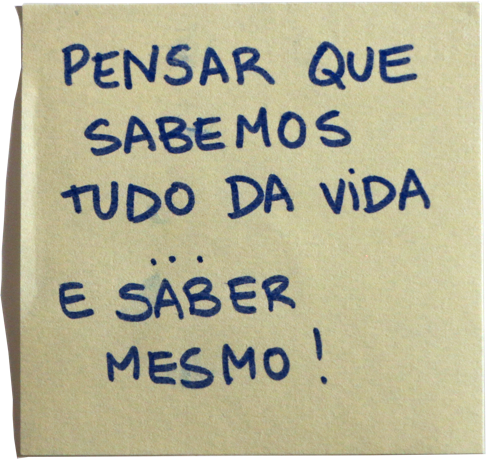 PENSAR QUE
SABEMOS
TUDO DA ViDA
...
E SABER
MESMO!